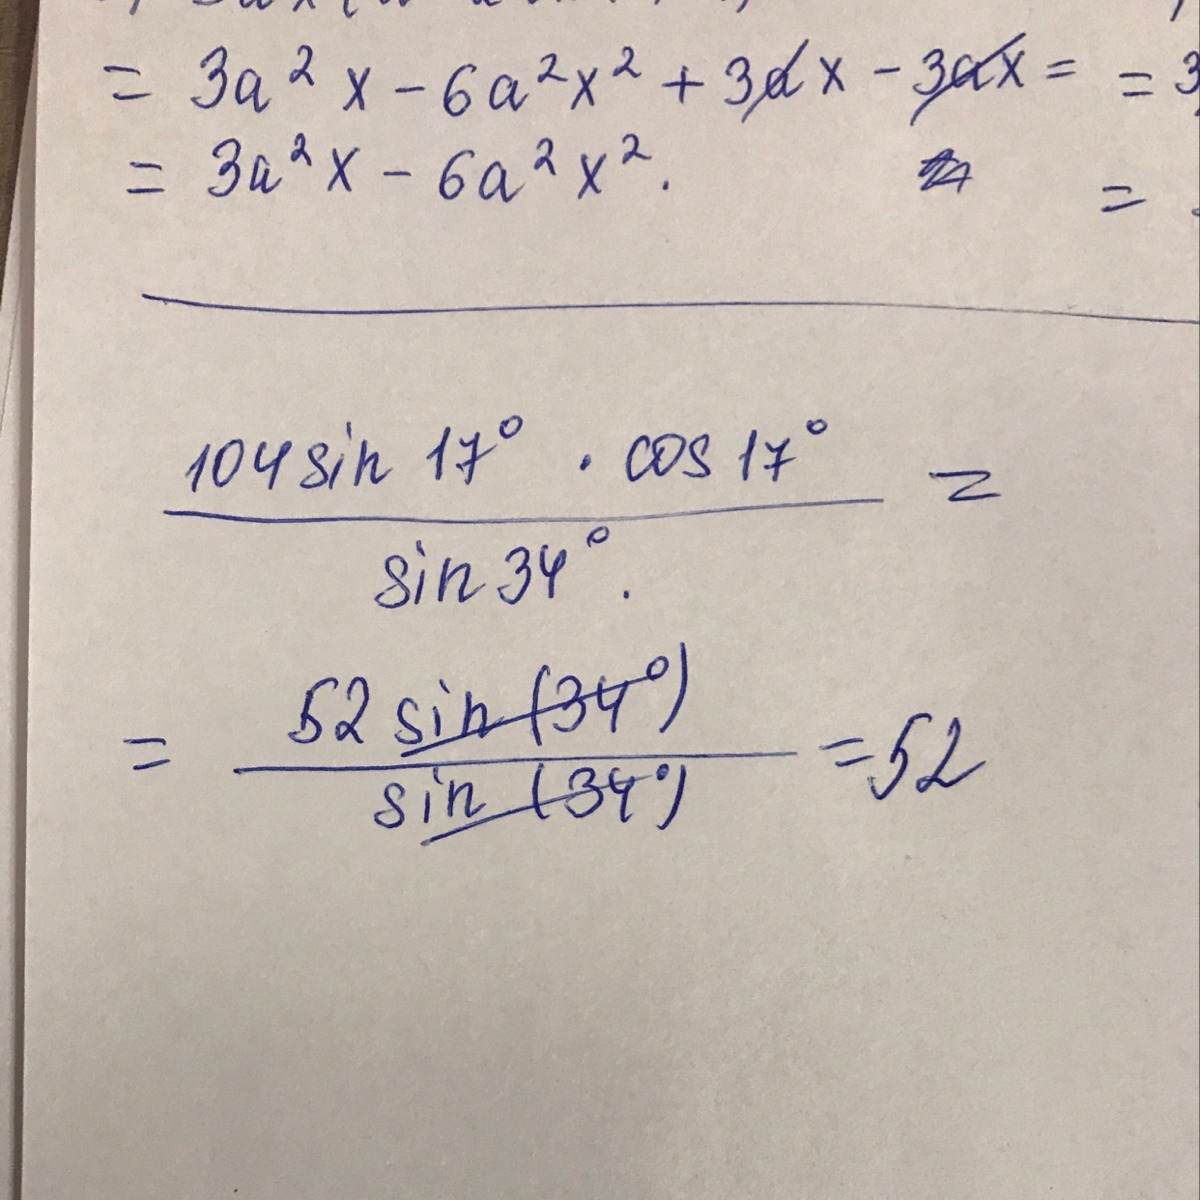 = 3a² x - 6a² x² + 3ax - 3ax = = 3
= 3a² x - 6a² x². =
104 sin 17° · cos 17° =
sin 34°.
= 52 sin (34°) = 52
sin (34°)